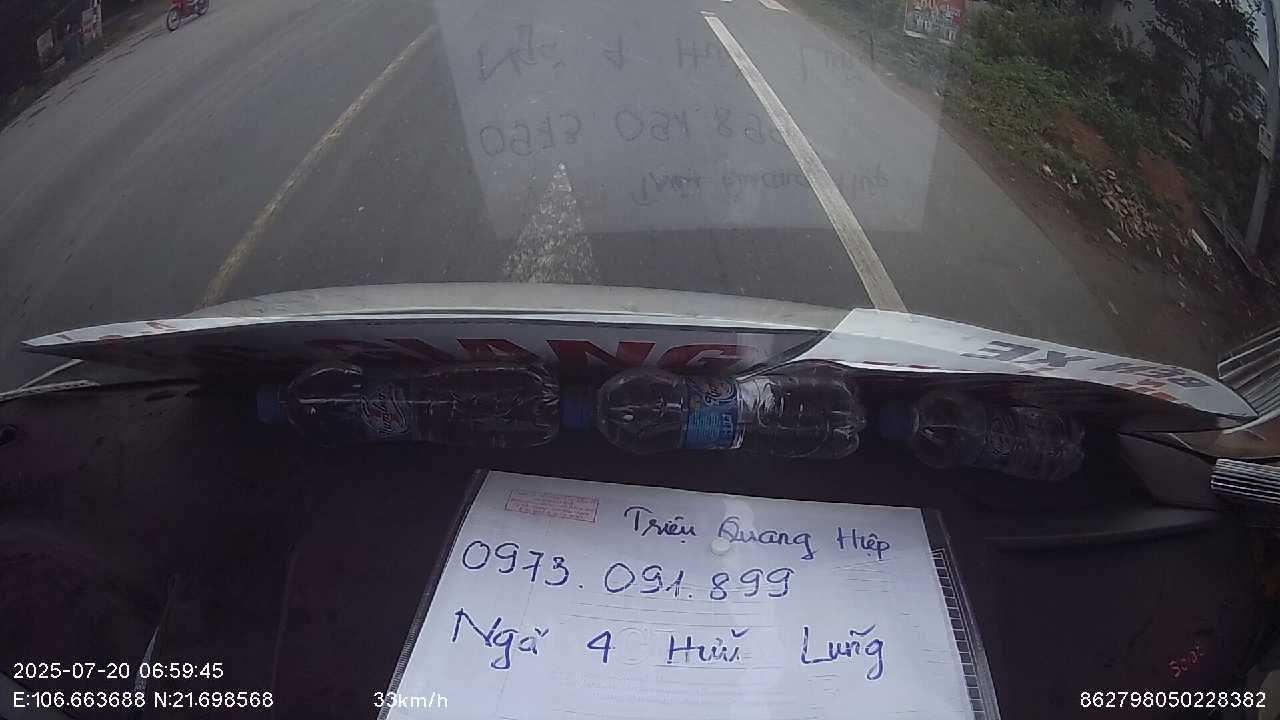 GIANG
BẾN XE
Triệu Quang Hiệp
0973.091.899
Ngã 4 Hữu Lũng
2025-07-20 06:59:45
E:106.663688 N:21.698568
33km/h
862798050228382